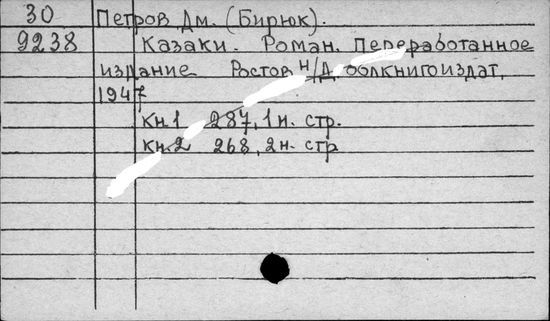 30 Петров Дм. (Бирюк).
9238 Казаки. Роман. Переработанное
издание Ростов н/Д, облкнигоиздат,
1947
Кн.1 287, 1 н. стр.
Кн.2 268, 2 н. стр